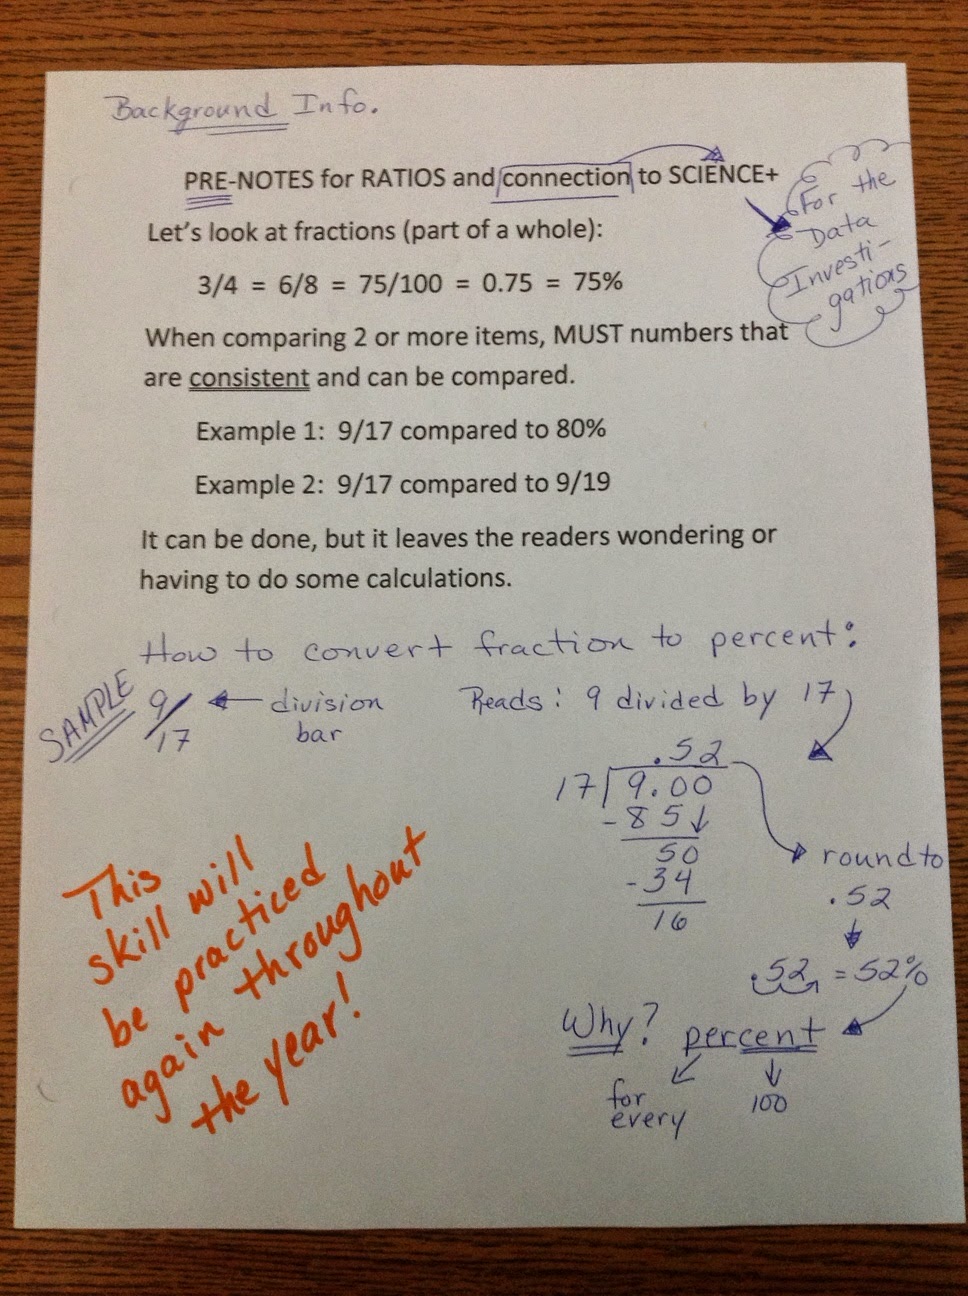 Background Info.
PRE-NOTES for RATIOS and connection to SCIENCE+
For the
Data
Investi-
gations
Let's look at fractions (part of a whole):
3/4 = 6/8 = 75/100 = 0.75 = 75%
When comparing 2 or more items, MUST numbers that
are consistent and can be compared.
Example 1: 9/17 compared to 80%
Example 2: 9/17 compared to 9/19
It can be done, but it leaves the readers wondering or
having to do some calculations.
How to convert fraction to percent:
SAMPLE 9/17 ← division
bar
Reads: 9 divided by 17
.52
17 9.00
-85↓
50
-34
16
round to
.52
.52 = 52%
Why? percent
for
every
100
This
skill will
be practiced
again throughout
the year!